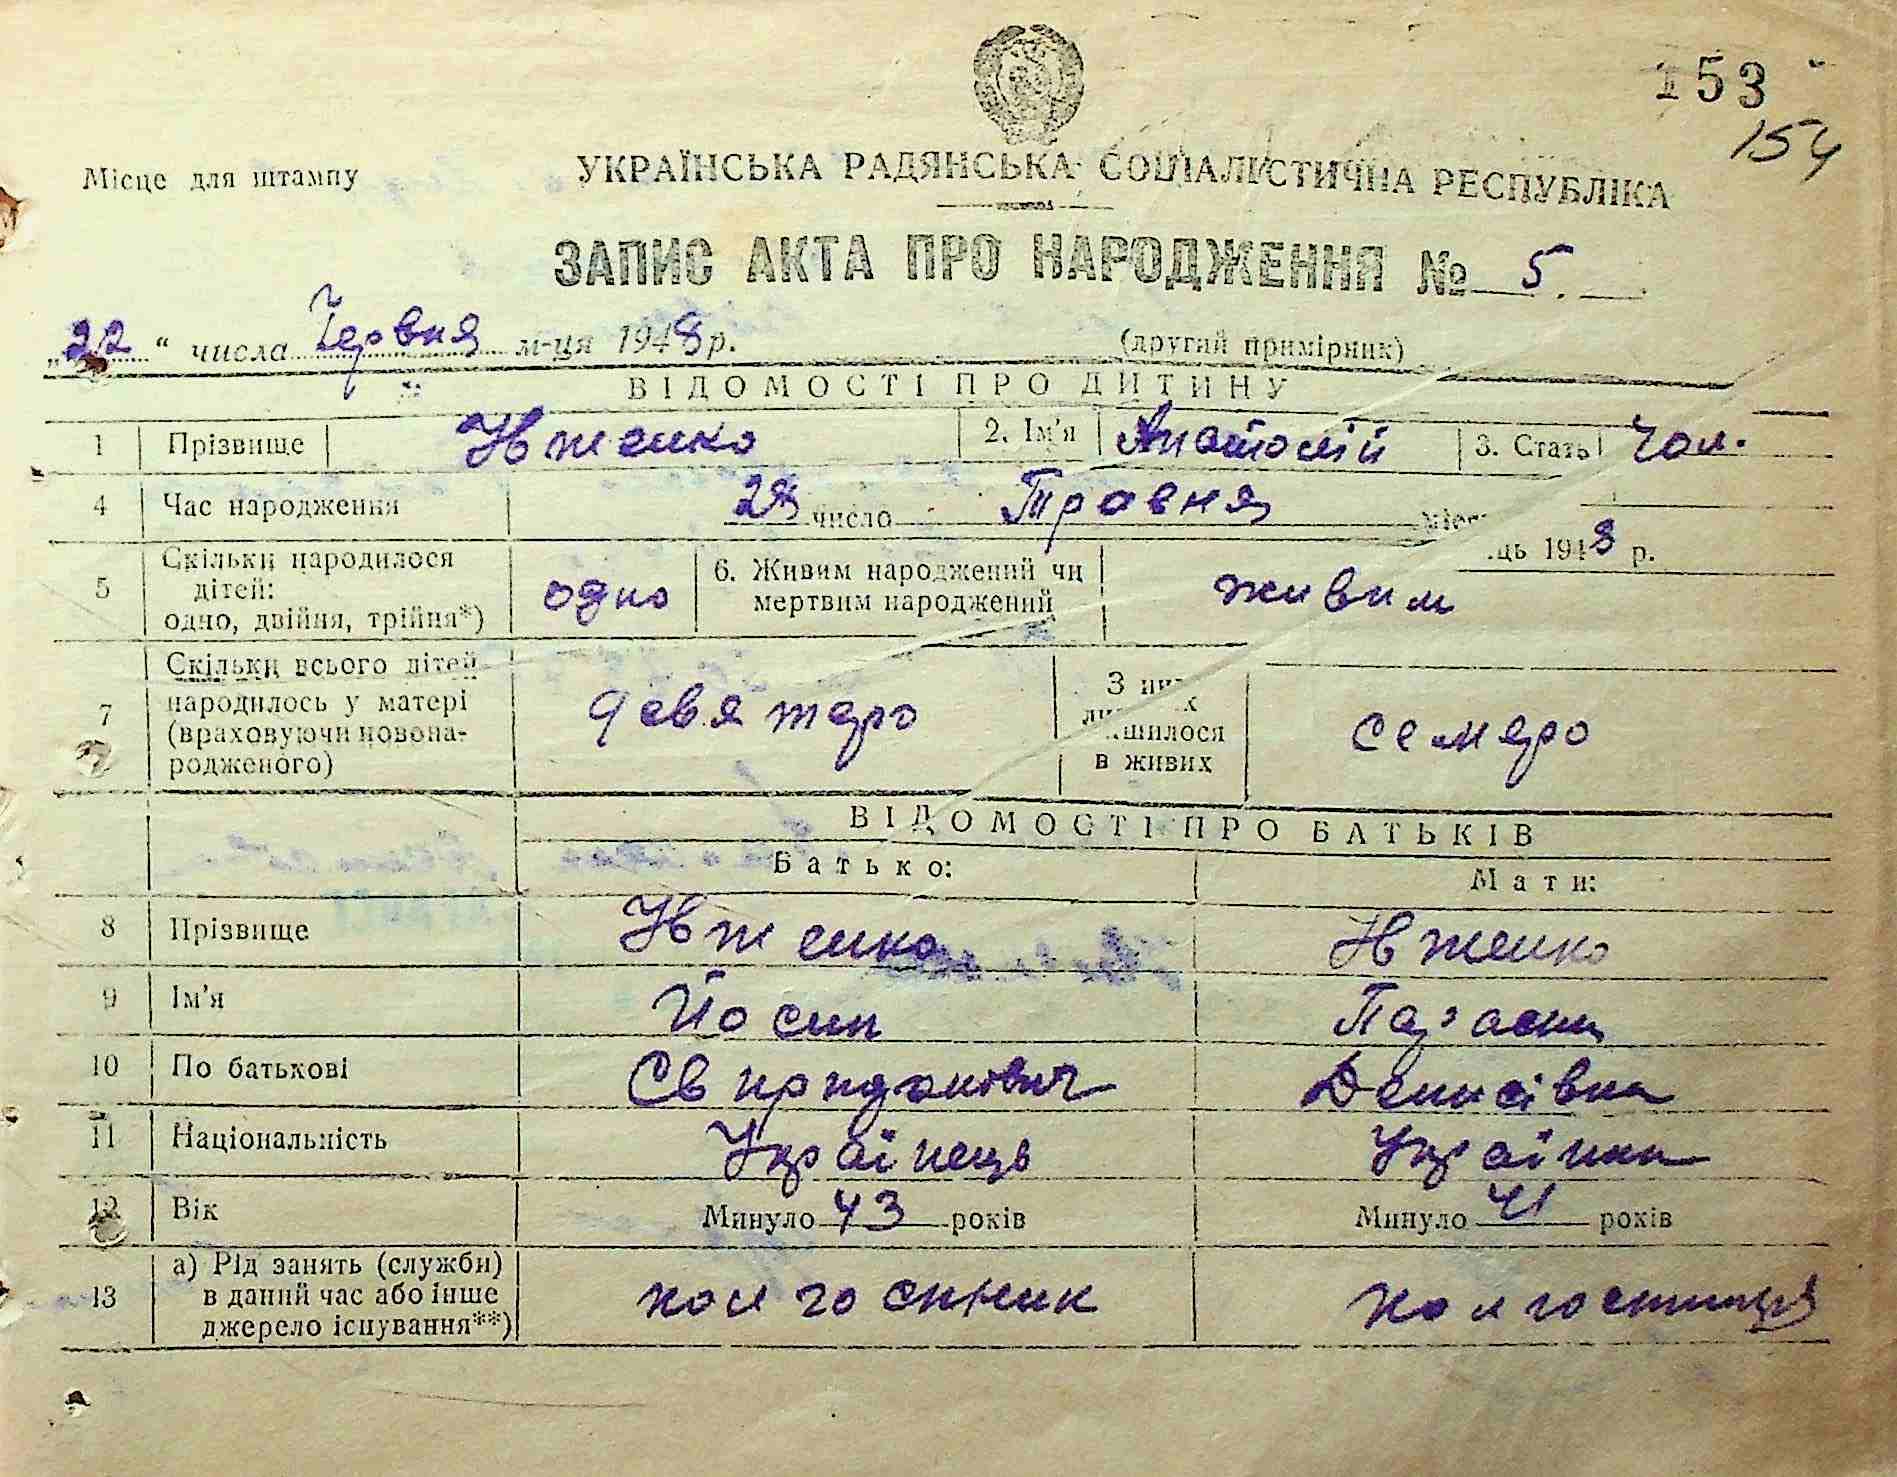 153
154
Місце для штампу
УКРАЇНСЬКА РАДЯНСЬКА СОЦІАЛІСТИЧНА РЕСПУБЛІКА
ЗАПИС АКТА ПРО НАРОДЖЕННЯ № 5.
„22“ числа Червня м-ця 1948 р.
(другий примірник)
ВІДОМОСТІ ПРО ДИТИНУ
1 Прізвище Ївженко 2. Ім'я Анатолій 3. Стать Чол.
4 Час народження 28 число Травня місяць 1948 р.
5 Скільки народилося
дітей:
одно, двійня, трійня*) одно
6. Живим народжений чи
мертвим народжений живим
7 Скільки всього дітей
народилось у матері
(враховуючи новона-
родженого) девятеро
З них
лишилося
в живих семеро
ВІДОМОСТІ ПРО БАТЬКІВ
Батько: Мати:
8 Прізвище Ївженко Ївженко
9 Ім'я Йосип Параска
10 По батькові Денисівна
11 Національність Українець Українка
12 Вік Минуло 43 років Минуло 41 років
13 а) Рід занять (служби)
в даний час або інше
джерело існування**) колгоспник колгоспниця